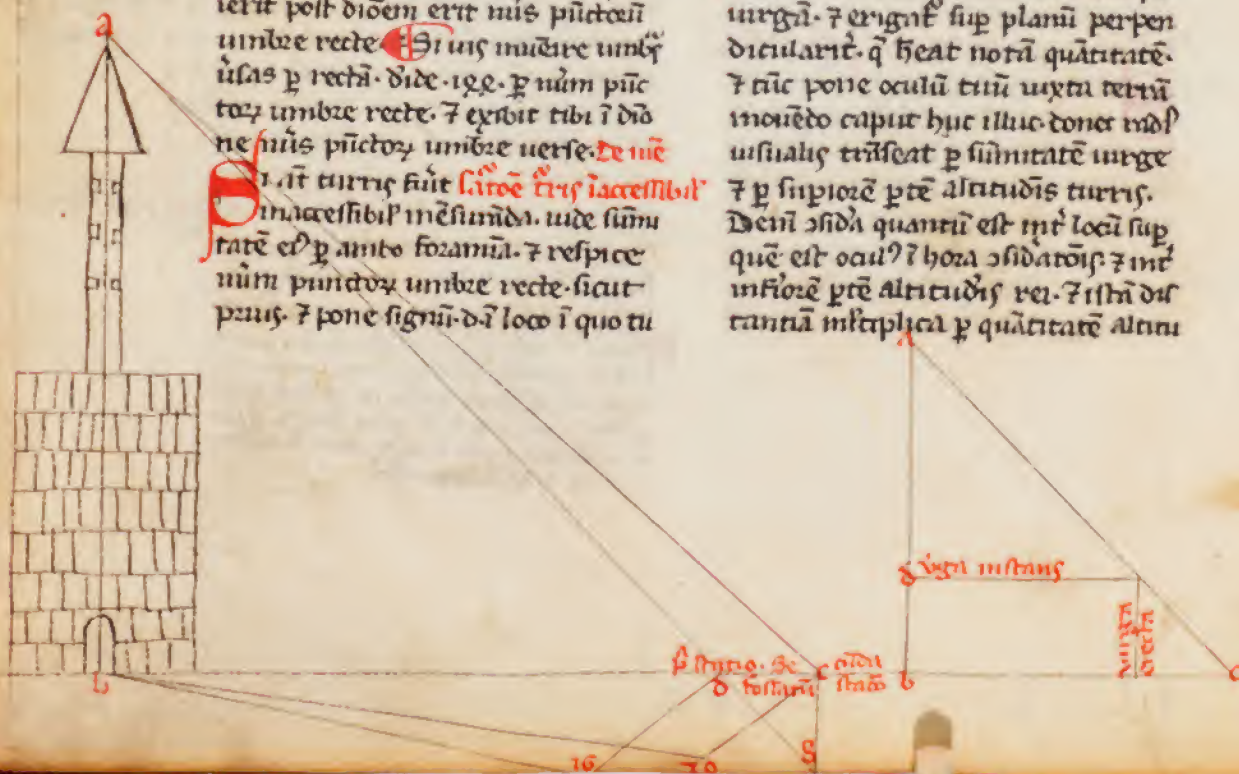 ierit post diōem erit nūs pūctorū
umbre recte Si uis inuēire umbrā
ūsas ꝑ rectā. dīde .144. ꝑ nūm pūc
toꝝ umbre recte. ⁊ exibit tibi ī diō
ne nūs pūctoꝝ umbre uerse. De mē
Si āt turris fūit sāroē tris īaccessibil
inaccessibil mēsurāda. uide sūmi
tatē eiꝰ ꝑ ambo foramīa. ⁊ respice
nūm punctoꝝ umbre recte. sicut
prius. ⁊ pone signū. d. ī loco ī quo tu
uirgā. ⁊ erigat sup planū perpen
dicularit. q̄ heat notā quātitatē.
⁊ tūc pone oculū tuū iuxta terrā
mouēdo caput huc illuc. donec radꝰ
uisualis trāseat ꝑ sūmitatē uirge
⁊ ꝑ supiorē ptē altitudīs turris.
Deīn ɔsida quantū est int locū sup
quē est oculꝰ ī hora ɔsidatōis. ⁊ int
inf'iorē ptē altitudīs rei. ⁊ istā dis
tantiā mltiplica ꝑ quātitatē altitu
a
b
p statio. Se
d
c
g
16
A
d uga instans
uirga erecta
b
c